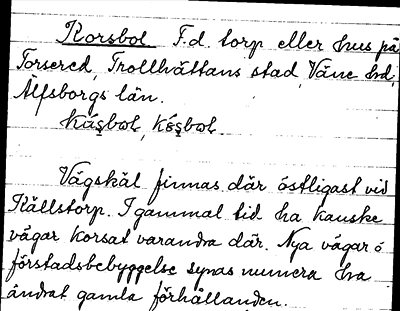 Korsbol F.d. torp eller hus på
Torsered, Trollhättans stad, Väne hd,
Älfsborgs län.
Vägskäl finnas där östligast vid
Källstorp. I gammal tid ha kanske
vägar korsat varandra där. Nya vägar o
förstadsbebyggelse synas numera ha
ändrat gamla förhållanden.